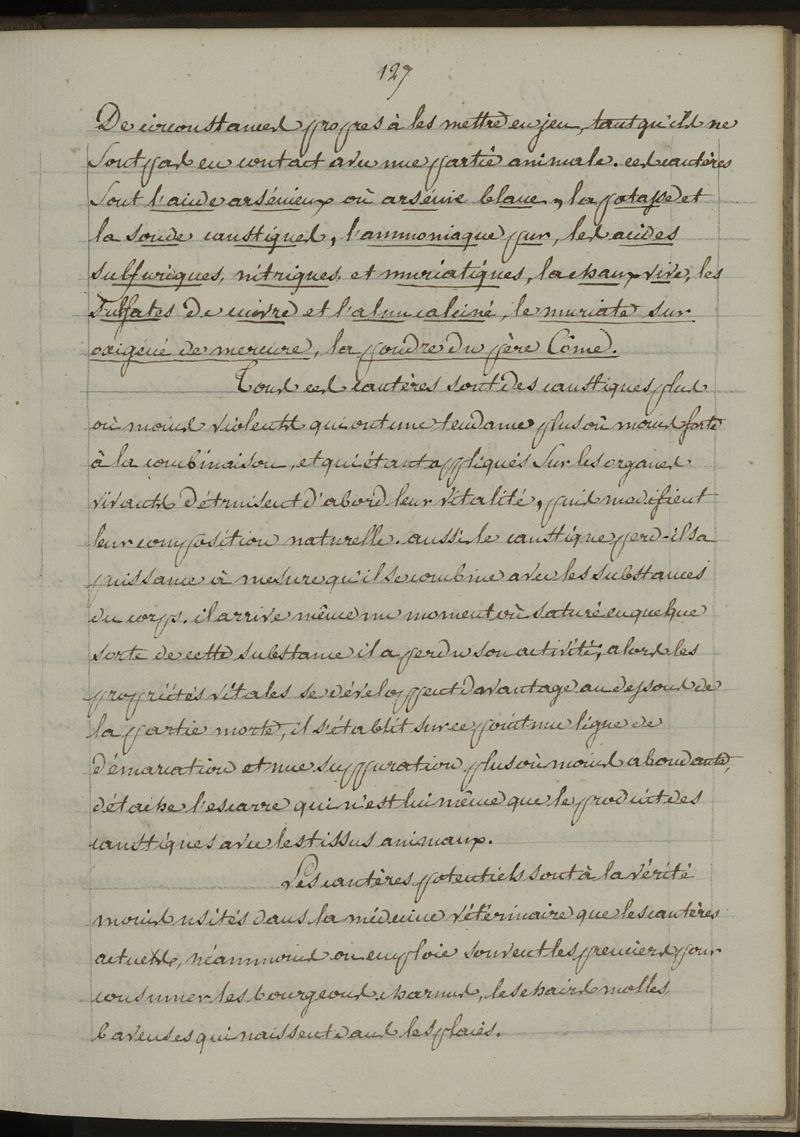 127
De circonstances propres à les mettre en jeu, tant qu'ils ne
Sont pas en contact avec une partie animale. ces cautères
Sont l'acide arsénieux où arsénic blanc, la potasse et
la soude caustiques, l'ammoniaque pur, les acides
sulfuriques, nitriques, et muriatiques, la chaux vive, les
Sulfates de cuivre et l'alun calciné, le muriate sur
oxigéné de mercure, la poudre du père Côme.
Tous ces cautères sont des caustiques plus
où moins violents qui ont une tendance plus où moins forte
à la combinaison, et qui étant appliqués Sur les organes
vivants détruisent d'abord leur vitalité, puis modifient
leur composition naturelle. aussi le caustique perd-il sa
puissance à mesure qu'il se combine avec les substances
du corps. il arrive même un moment où saturé en quelque
sorte de cette substance il a perdu son activité; alors les
propriétés vitales se développent davantage au dessous de
la partie morte, il s'établit sur ce point une ligne de
démarcation et une suppuration plus où moins abondante,
détache l'escarre qui n'est lui même que le produit des
caustiques avec les tissus animaux.
Les cautères potentiels sont à la vérité
moins usités dans la médecine vétérinaire que les cautères
actuels, néammoins on emploie souvent les premiers pour
consumer les bourgeons charnus, les chairs molles
baveuses qui naissent dans les plaies.